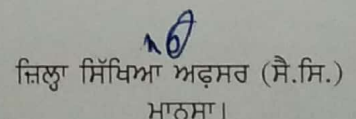 ਜ਼ਿਲ੍ਹਾ ਸਿੱਖਿਆ ਅਫ਼ਸਰ (ਸੈ.ਸਿ.)
ਮਾਨਸਾ।